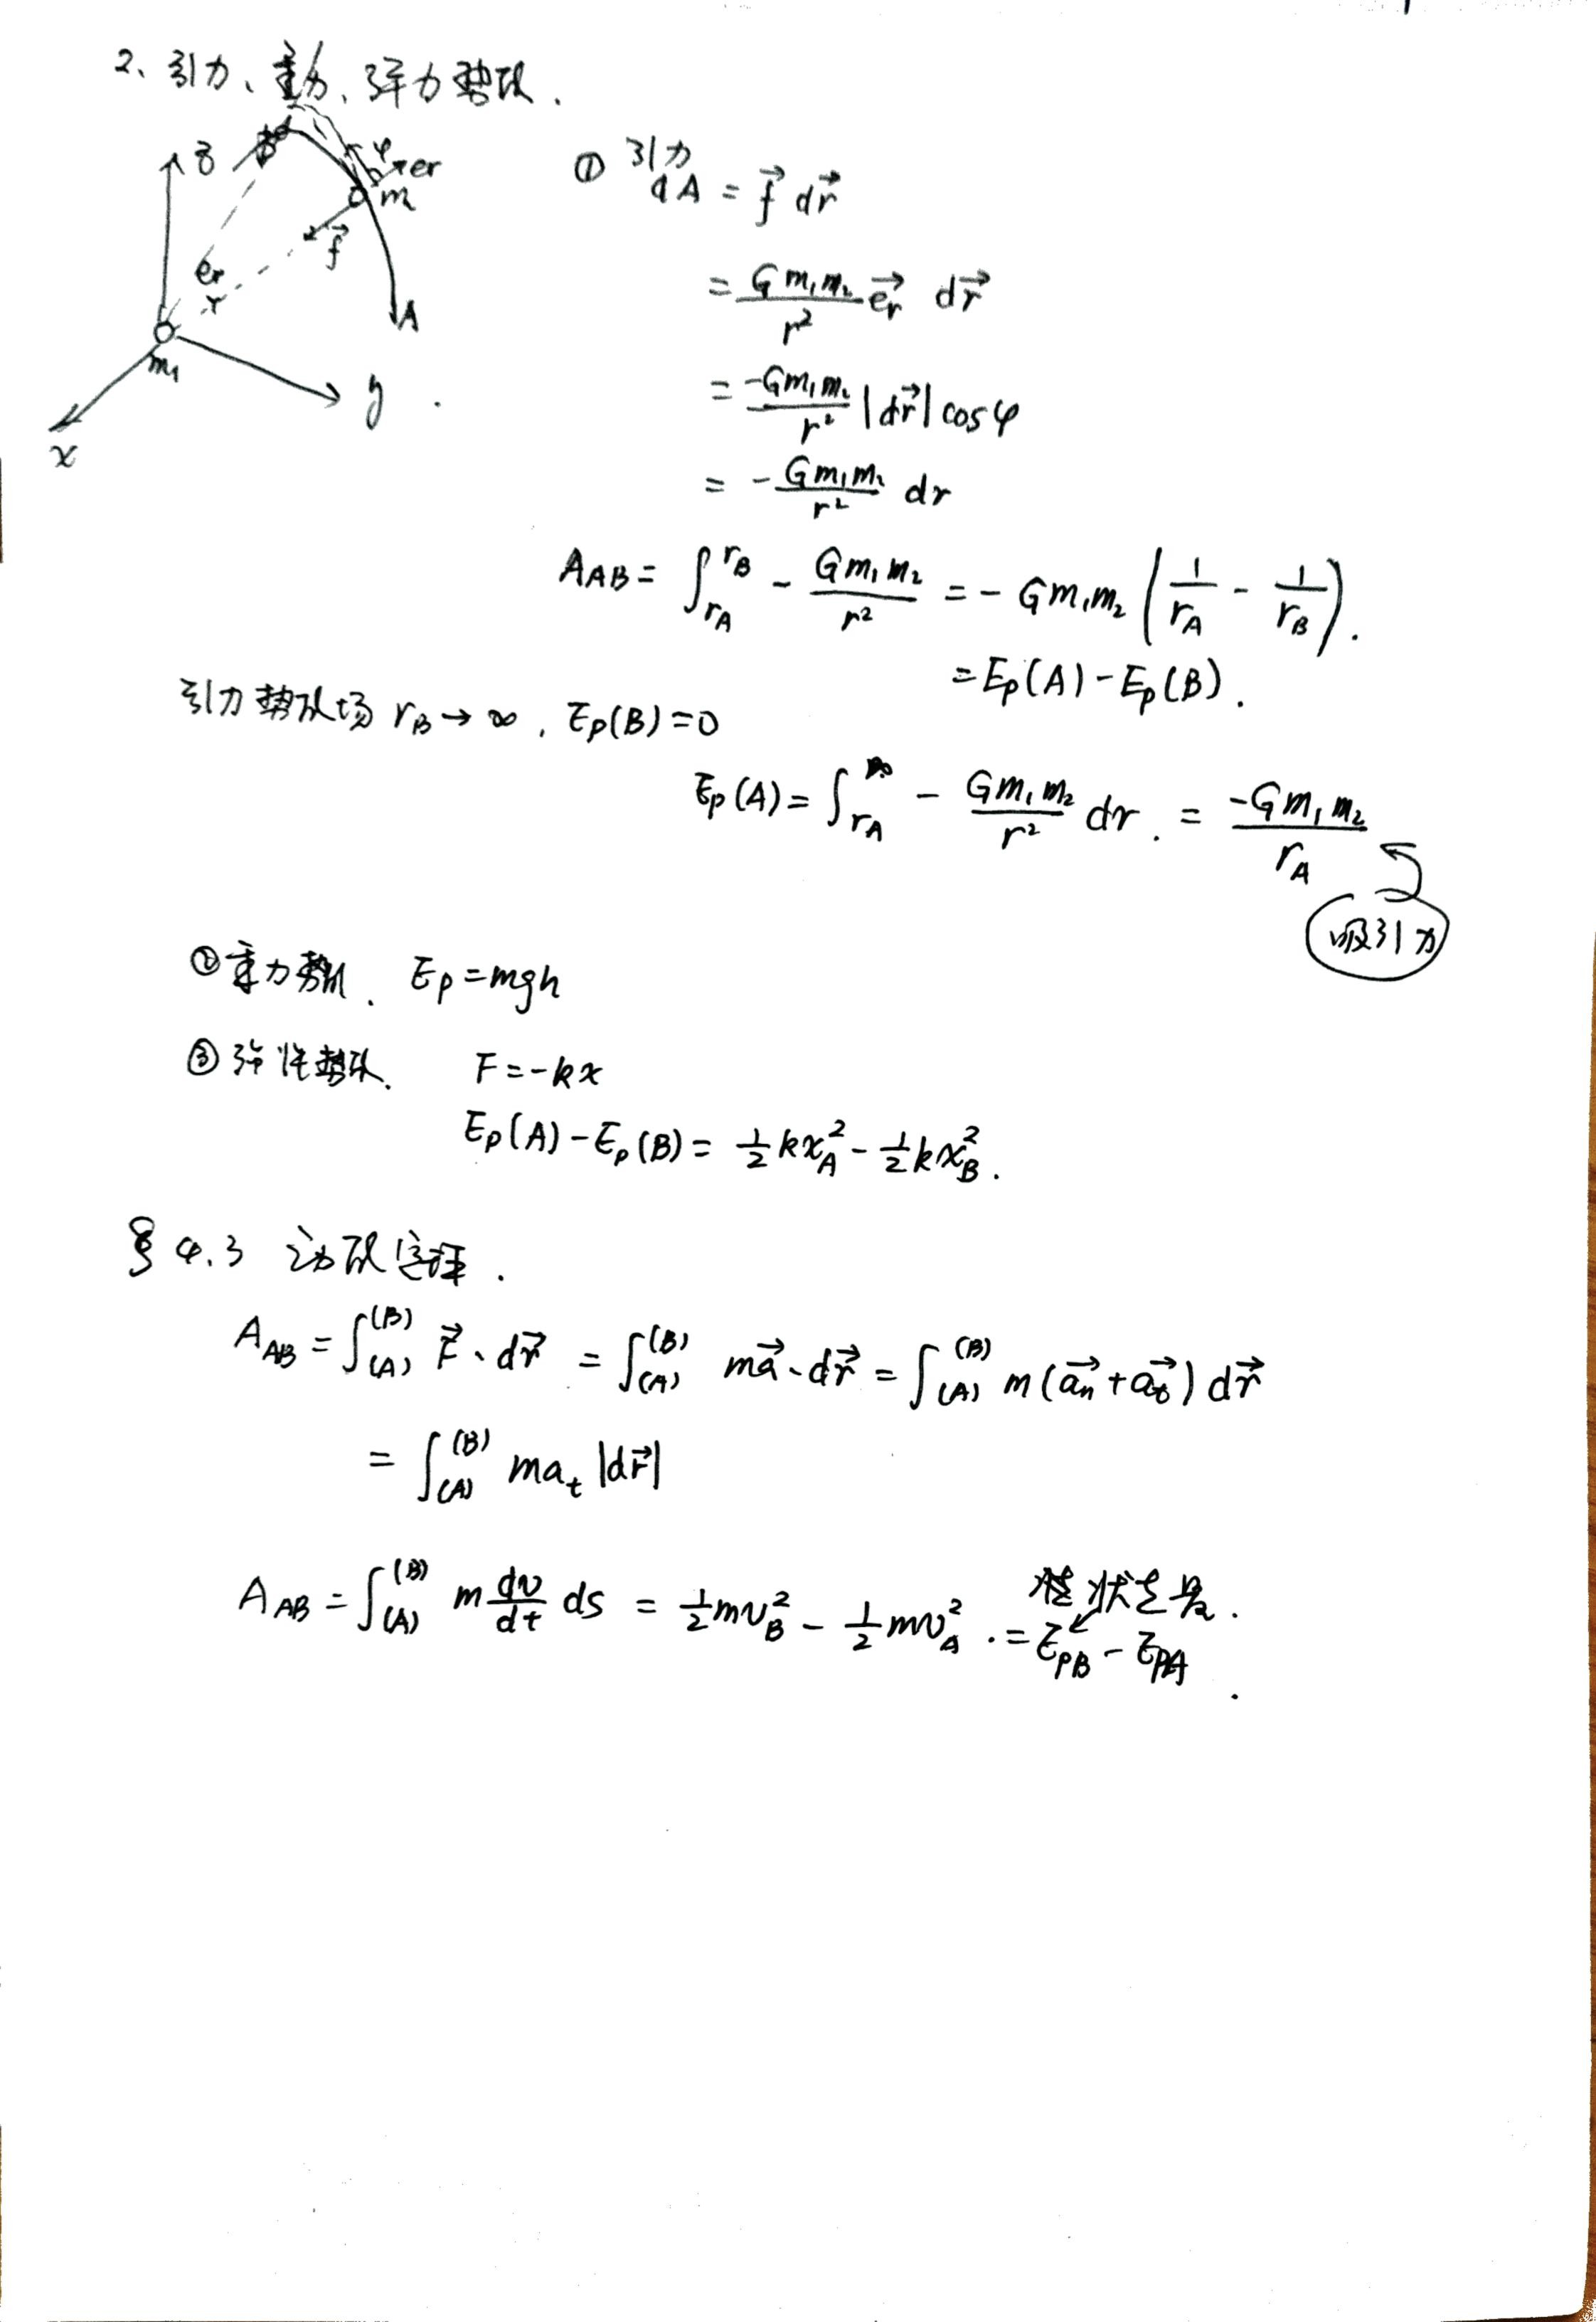 2、引力、重力、弹力势能.
z
φ
er
m
f⃗
er
r
A
m₁
y
x
① 引力
dA = f⃗ dr⃗
= Gm₁m₂/r² e⃗r dr⃗
= -Gm₁m₂/r² |dr⃗| cosφ
= - Gm₁m₂/r² dr
A_AB = ∫_{r_A}^{r_B} - Gm₁m₂/r² = - Gm₁m₂ (1/r_A - 1/r_B).
= Ep(A) - Ep(B).
引力势能场 r_B → ∞, Ep(B) = 0
Ep(A) = ∫_{r_A}^{∞} - Gm₁m₂/r² dr. = -Gm₁m₂/r_A
吸引力
② 重力势能. Ep = mgh
③ 弹性势能. F = -kx
Ep(A) - Ep(B) = ½kx_A² - ½kx_B².
§ 4.3 动能定理.
A_AB = ∫_{(A)}^{(B)} F⃗ · dr⃗ = ∫_{(A)}^{(B)} ma⃗ · dr⃗ = ∫_{(A)}^{(B)} m(a⃗n + a⃗t) dr⃗
= ∫_{(A)}^{(B)} ma_t |dr⃗|
A_AB = ∫_{(A)}^{(B)} m dv/dt ds = ½mv_B² - ½mv_A². = E_PB - E_PA
状态量.